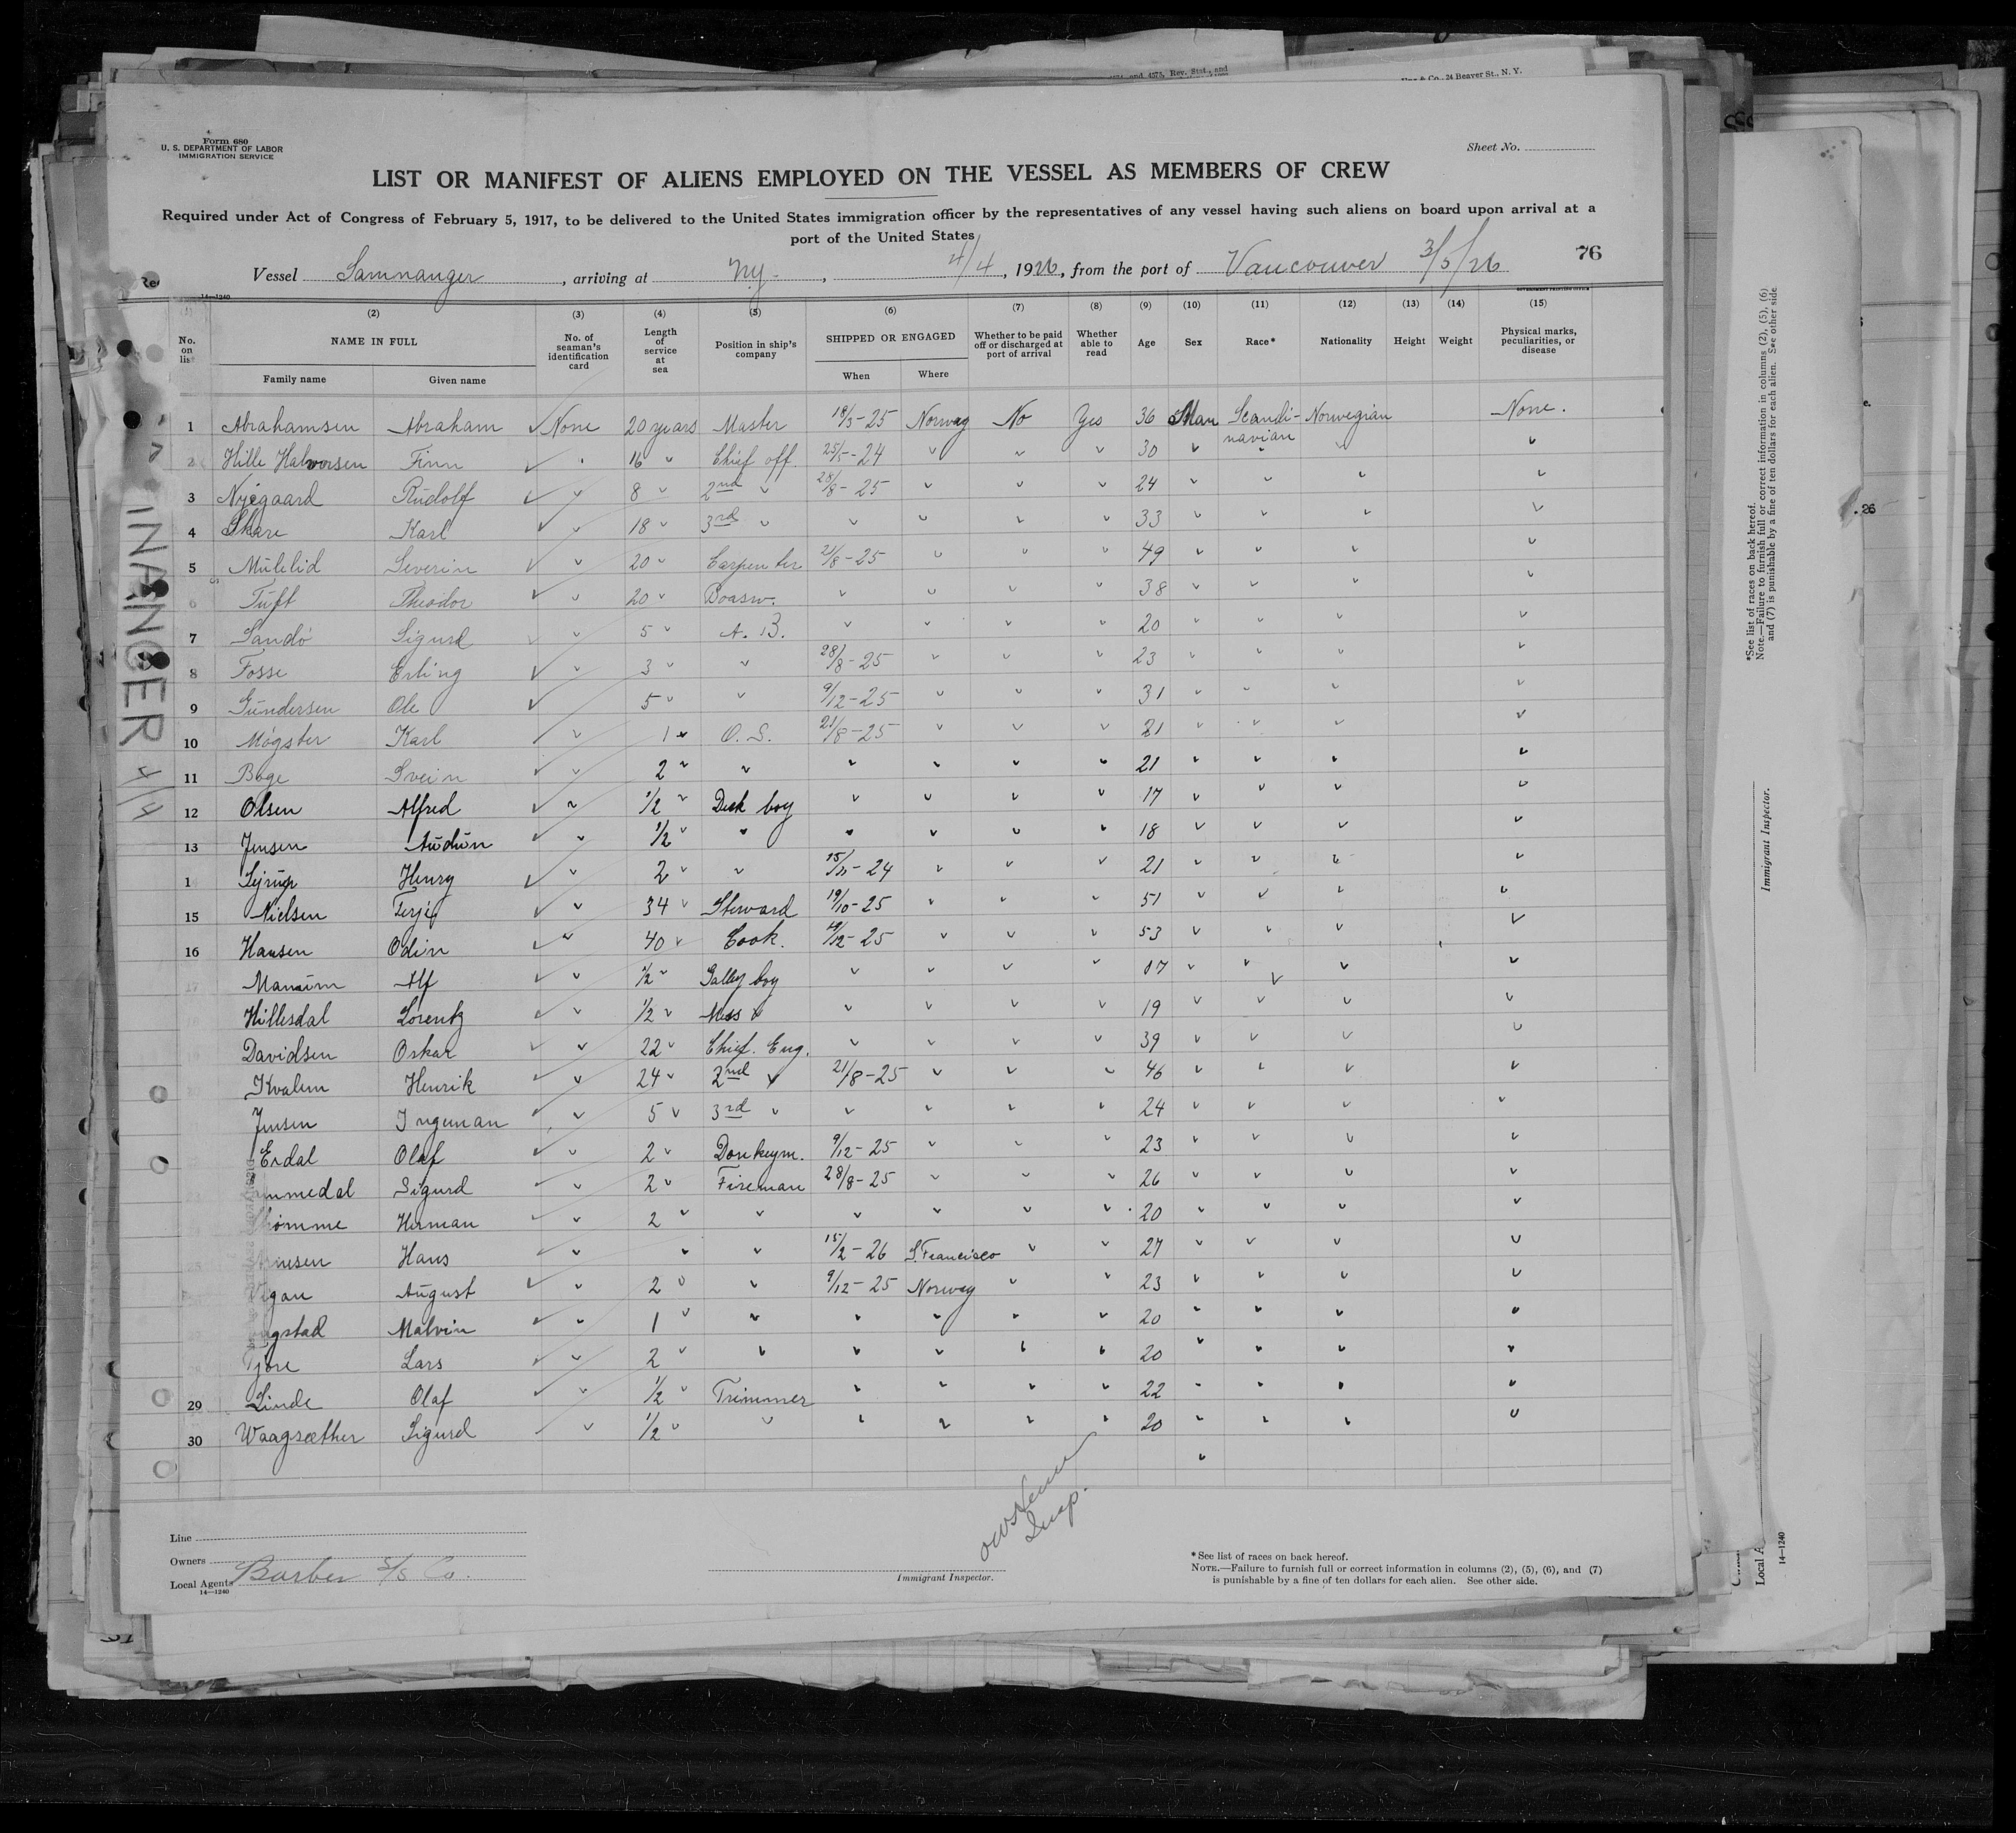 and 4575, Rev. Stat., and
& Co., 24 Beaver St., N. Y.
Form 680
U. S. DEPARTMENT OF LABOR
IMMIGRATION SERVICE
Sheet No.
LIST OR MANIFEST OF ALIENS EMPLOYED ON THE VESSEL AS MEMBERS OF CREW
Required under Act of Congress of February 5, 1917, to be delivered to the United States immigration officer by the representatives of any vessel having such aliens on board upon arrival at a
port of the United States
Vessel Samnanger, arriving at NY., 4/4, 1926, from the port of Vancouver 3/5/26 76
14—1240
(2) (3) (4) (5) (6) (7) (8) (9) (10) (11) (12) (13) (14) (15)
No. on list NAME IN FULL No. of seaman's identification card Length of service at sea Position in ship's company SHIPPED OR ENGAGED Whether to be paid off or discharged at port of arrival Whether able to read Age Sex Race* Nationality Height Weight Physical marks, peculiarities, or disease
Family name Given name When Where
1 Abrahamsen Abraham ✓ None 20 years Master 18/3-25 Norway No Yes 36 Man Scandi-navian Norwegian None.
2 Hille Halvorsen Finn ✓ " 16 " Chief off. 25/5-24 " " " 30 " " " "
3 Nyegaard Rudolf ✓ " 8 " 2nd " 28/8-25 " " " 24 " " " "
4 Skare Karl ✓ " 18 " 3rd " " " " " 33 " " " "
5 Mulelid Severin ✓ " 20 " Carpenter 21/8-25 " " " 49 " " " "
6 Tuft Theodor ✓ " 20 " Boasw. " " " " 38 " " " "
7 Sandö Sigurd ✓ " 5 " A. B. " " " " 20 " " " "
8 Fosse Erling ✓ " 3 " " 28/8-25 " " " 23 " " " "
9 Gundersen Ole ✓ 5 " " 9/12-25 " " " 31 " " " "
10 Mögster Karl ✓ " 1 " O. S. 21/8-25 " " " 21 " " " "
11 Boge Svein ✓ " 2 " " " " " " 21 " " " "
12 Olsen Alfred ✓ " 1/2 " Deck boy " " " " 17 " " " "
13 Jensen Audun ✓ " 1/2 " " " " " " 18 " " " "
1 Sejrup Henry ✓ " 2 " " -24 " " " 21 " " " "
15 Nielsen Terje ✓ " 34 " Steward 19/10-25 " " " 51 " " " "
16 Hansen Odin ✓ " 40 " Cook. /12-25 " " " 53 " " " "
17 Alf ✓ " 1/2 " Galley boy " " " " 17 " " " "
Hillesdal Lorentz ✓ " 1/2 " Mess " " " " " 19 " " " "
Davidsen Oskar ✓ " 22 " Chief. Eng. " " " " 39 " " " "
Kvalem Henrik ✓ " 24 " 2nd " 21/8-25 " " " 46 " " " "
Jensen Ingeman ✓ " 5 " 3rd " " " " " 24 " " " "
Erdal Olaf ✓ " 2 " Donkeym. 9/12-25 " " " 23 " " " "
23 mmedal Sigurd ✓ " 2 " Fireman 28/8-25 " " " 26 " " " "
ömme Herman ✓ " 2 " " " " " " 20 " " " "
25 nsen Hans ✓ " " " 15/2-26 S. Francisco " " 27 " " " "
Vigan August ✓ " 2 " " 9/12-25 Norway " " 23 " " " "
gstad Malvin ✓ " 1 " " " " " " 20 " " " "
Tjöre Lars ✓ " 2 " " " " " " 20 " " " "
29 Linde Olaf ✓ " 1/2 " Trimmer " " " " 22 " " " "
30 Waagsæther Sigurd ✓ " 1/2 " " " " " " 20 " " " "
"
Insp.
Line
Owners
Local Agents Barber S/S Co.
14—1240
Immigrant Inspector.
* See list of races on back hereof.
NOTE.—Failure to furnish full or correct information in columns (2), (5), (6), and (7)
is punishable by a fine of ten dollars for each alien. See other side.
NANGER 4/4
*See list of races on back hereof.
Note.—Failure to furnish full or correct information in columns (2), (5), (6)
and (7) is punishable by a fine of ten dollars for each alien. See other side
Immigrant Inspector.
Local A
14—1240
. 26